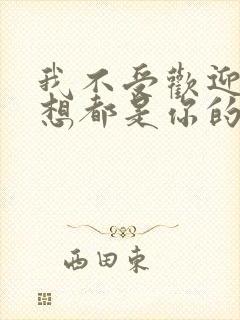 我不受歡迎
想都是你的
西田東